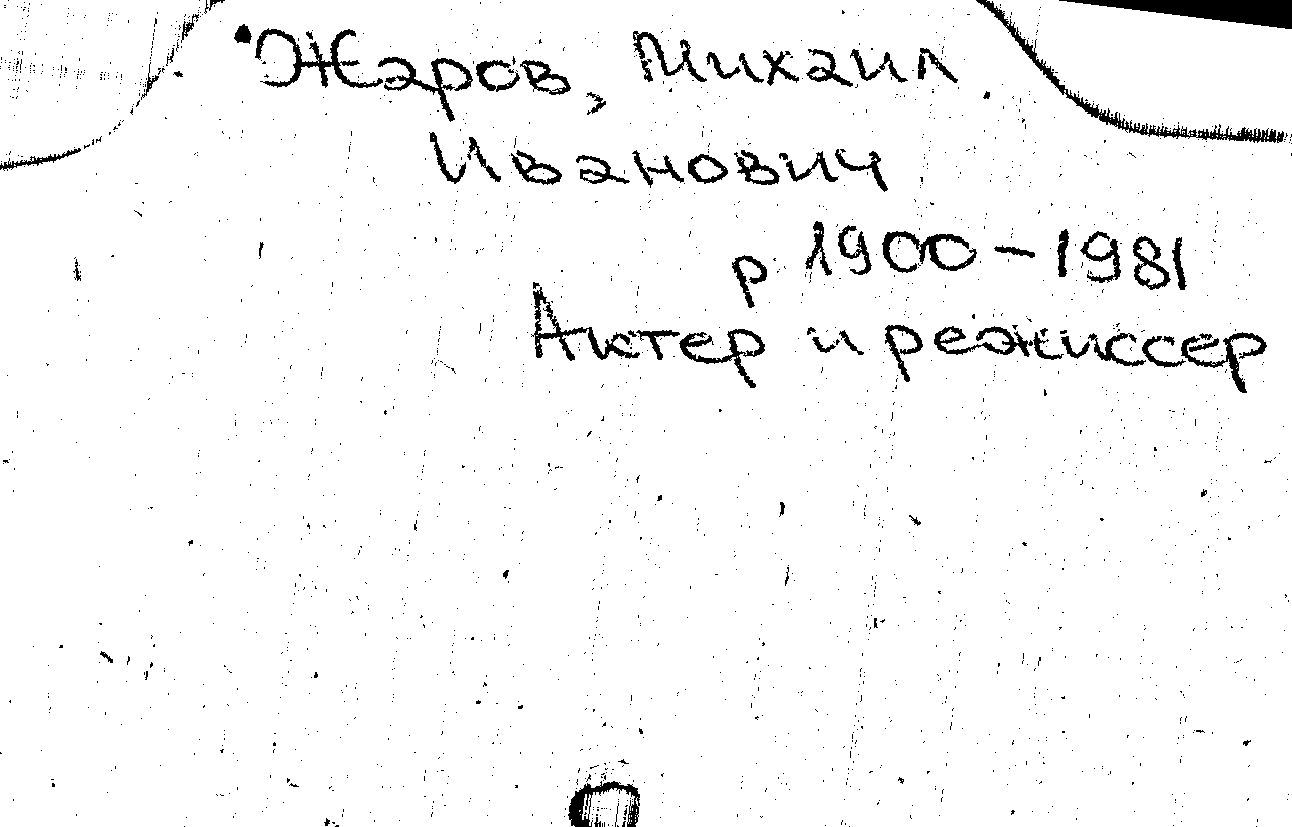 Жаров, Михаил
Иванович
р 1900-1981
Актер и режиссер